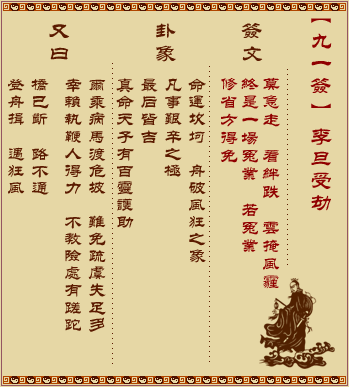 【九一簽】 李旦受劫
簽文
莫急走 看絆跌 雲掩風霾
終是一場冤業 若冤業
修省方得免
卦象
命運坎坷 舟破風狂之象
凡事艱辛之極
最后皆吉
真命天子有百靈護助
又曰
爾乘病馬渡危坡 難免疏虞失足多
幸賴執鞭人得力 不教險處有蹉跎
橋已斷 路不通
登舟揖 遇狂風